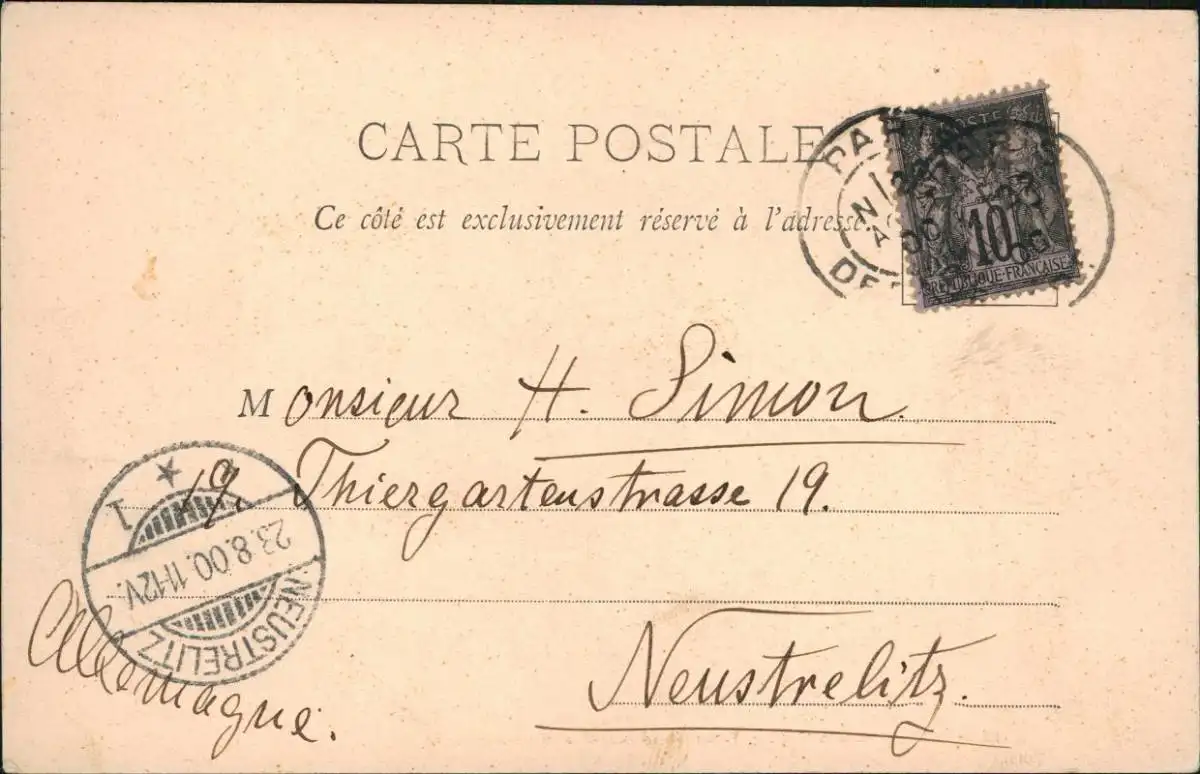 CARTE POSTALE
Ce côté est exclusivement réservé à l'adresse.
POSTE
10
REPUBLIQUE·FRANÇAISE
PAR
DE
Monsieur H. Simon.
19. Thiergartenstrasse 19.
Neustrelitz.
Allemagne.
NEUSTRELITZ
23.8.00.11-12V.
1